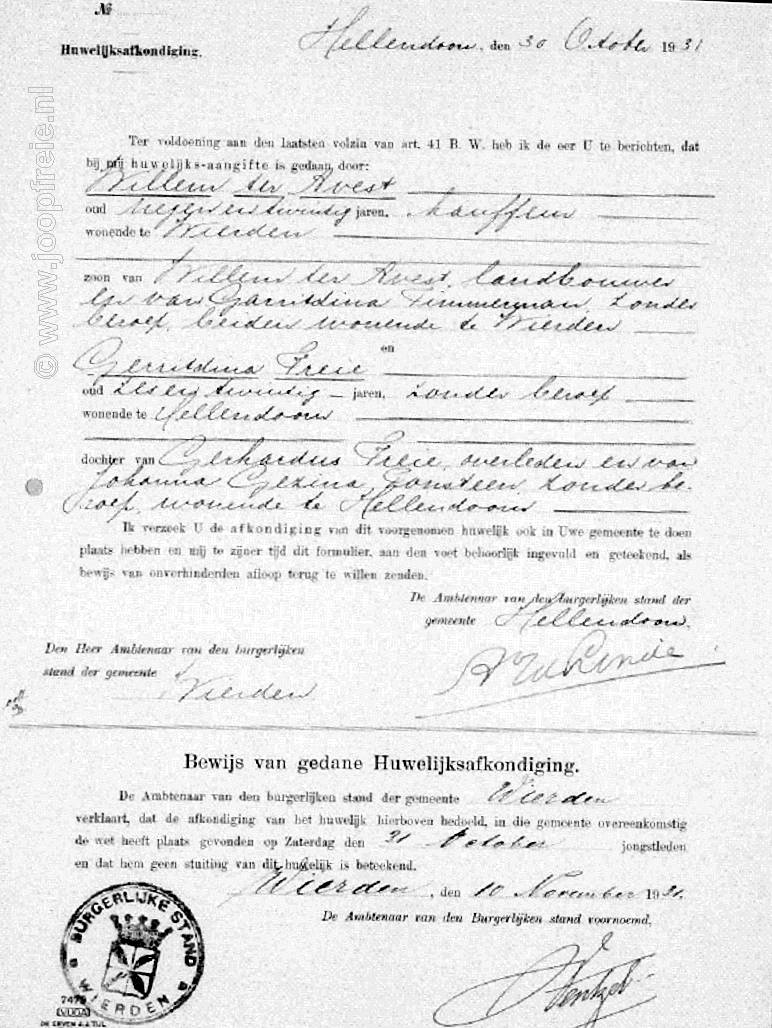 №
Huwelijksafkondiging.
Hellendoorn, den 30 October 1931
Ter voldoening aan den laatsten volzin van art. 41 B. W. heb ik de eer U te berichten, dat
bij mij huwelijks-aangifte is gedaan, door:
Willem ter Avest
oud negenentwintig jaren, chauffeur
wonende te Wierden
zoon van Willem ter Avest, landbouwer
en van Garritdina Timmerman, zonder
beroep, beiden wonende te Wierden
en
Gerritdina Freie
oud zesentwintig jaren, zonder beroep
wonende te Hellendoorn
dochter van Gerhardus Freie, overleden en van
Johanna Gezina Eonsteen, zonder be-
roep, wonende te Hellendoorn
Ik verzoek U de afkondiging van dit voorgenomen huwelijk ook in Uwe gemeente te doen
plaats hebben en mij te zijner tijd dit formulier, aan den voet behoorlijk ingevuld en geteekend, als
bewijs van onverhinderden afloop terug te willen zenden.
De Ambtenaar van den burgerlijken stand der
gemeente Hellendoorn.
Den Heer Ambtenaar van den burgerlijken
stand der gemeente
Wierden
Bewijs van gedane Huwelijksafkondiging.
De Ambtenaar van den burgerlijken stand der gemeente Wierden
verklaart, dat de afkondiging van het huwelijk hierboven bedoeld, in die gemeente overeenkomstig
de wet heeft plaats gevonden op Zaterdag den 31 October jongstleden
en dat hem geen stuiting van dit huwelijk is beteekend.
Wierden, den 10 November 1931.
De Ambtenaar van den Burgerlijken stand voornoemd,
BURGERLIJKE STAND
WIERDEN
7479
VUGA
DE ERVEN J.J. TIJL
© www.joopfreie.nl